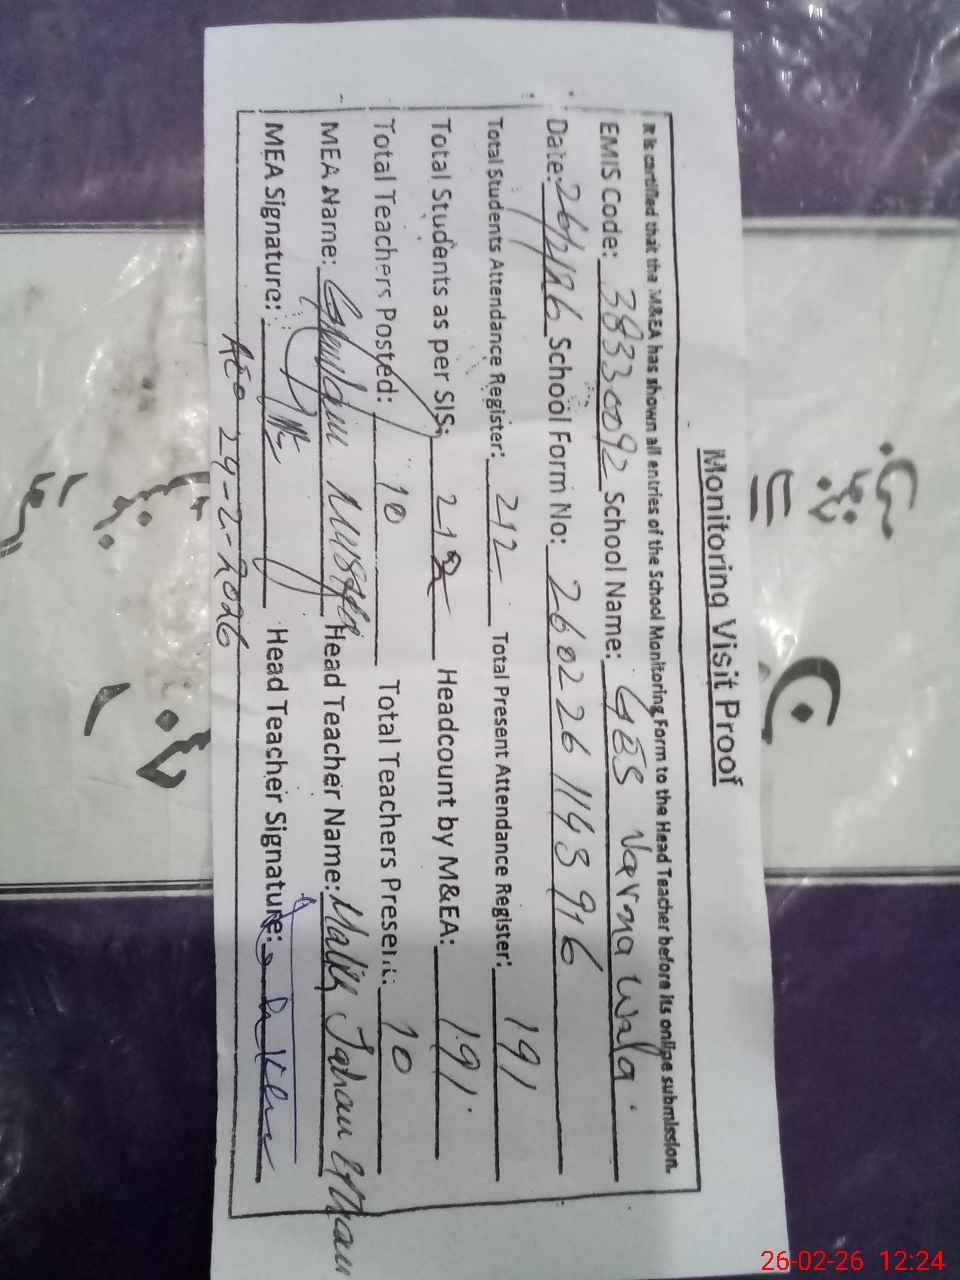 Monitoring Visit Proof
It is certified that the M&EA has shown all entries of the School Monitoring Form to the Head Teacher before its online submission.
EMIS Code: 38330092 School Name: GES Varna Wala
Date: 26/2/26 School Form No: 260226 1143916
Total Students Attendance Register: 212 Total Present Attendance Register: 191
Total Students as per SIS: 212 Headcount by M&EA: 191
Total Teachers Posted: 10 Total Teachers Present: 10
MEA Name: Head Teacher Name: Malik
MEA Signature: Head Teacher Signature:
AEO 24-2-2026
26-02-26 12:24